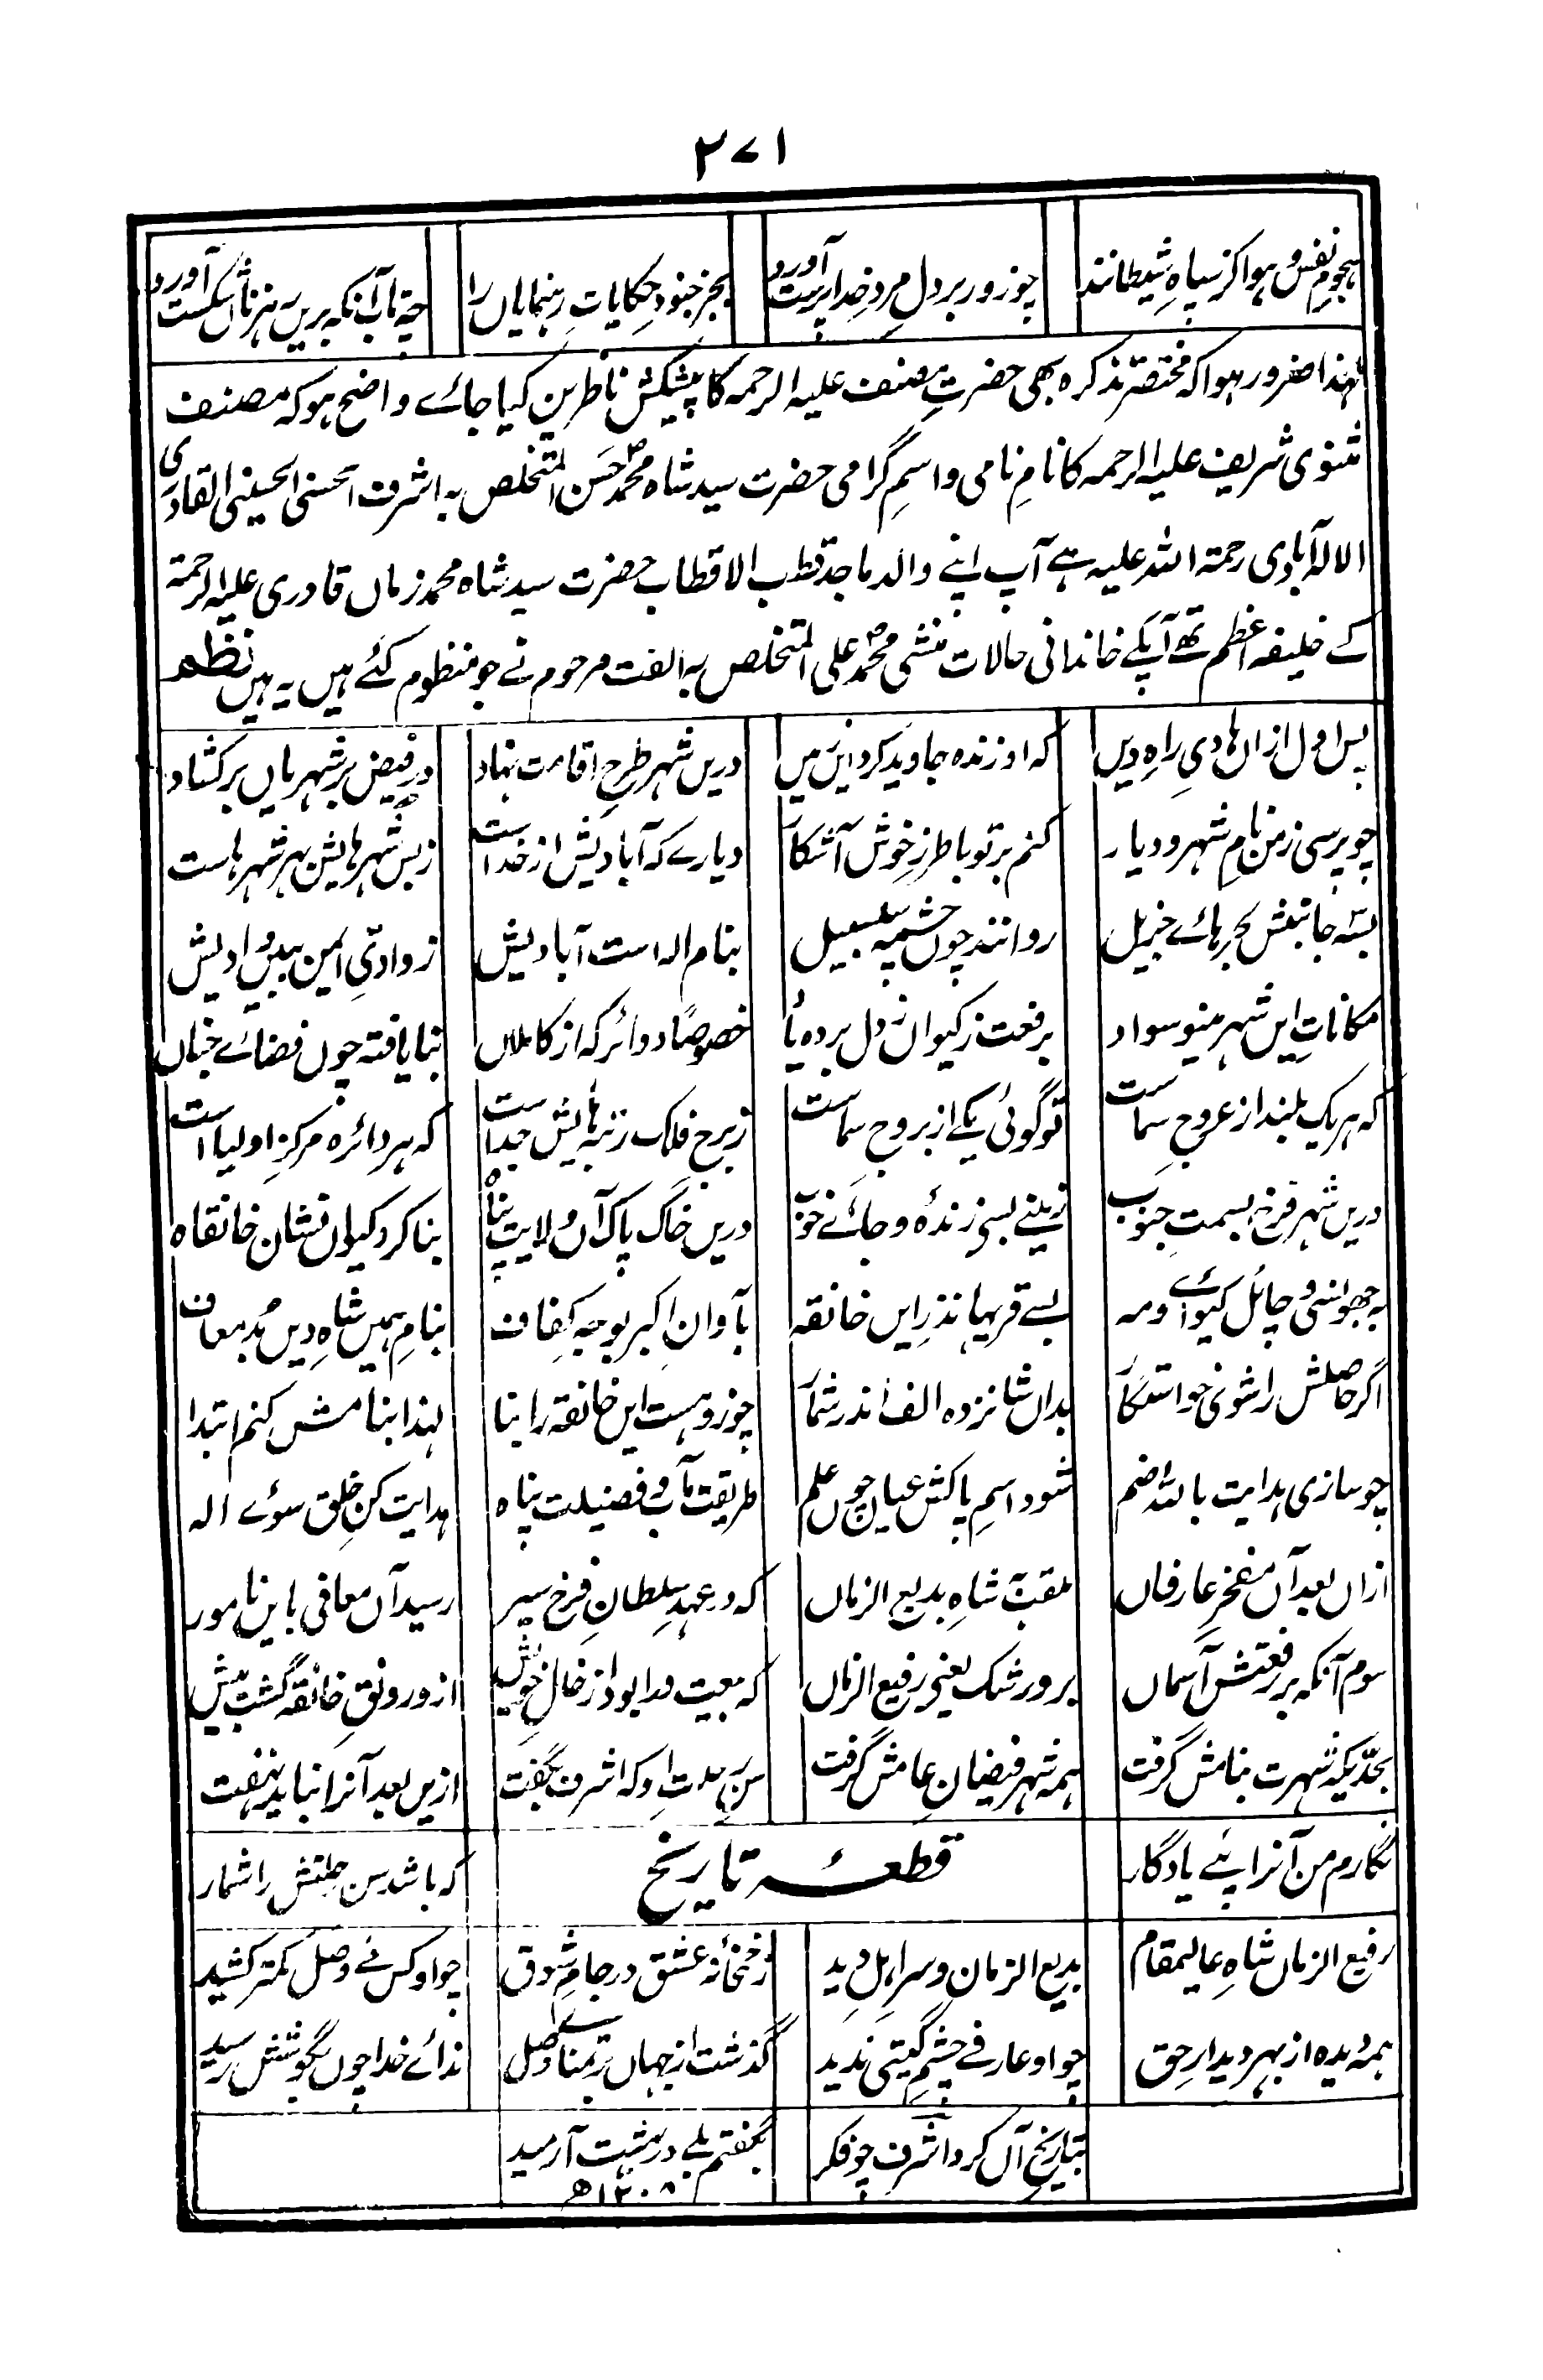 ۲۷۱
ہجوم نفس و ہوا کز سپاہِ شیطانند چو زور بر دلِ مردِ خدا پرست آورد بجز جنود حکایاتِ رہنمایاں را چہ تاب آنکہ بریں رہزناں شکست آورد
لہٰذا ضرور ہوا کہ مختصر تذکرہ بھی حضرتِ مصنف علیہ الرحمہ کا پیشکش ناظرین کیا جائے واضح ہو کہ مصنف
مثنوی شریف علیہ الرحمہ کا نامِ نامی و اسمِ گرامی حضرت سید شاہ محمد حسن المتخلص بہ اشرف الحسنی الحسینی القادری
الالہ آبادی رحمۃ اللہ علیہ ہے آپ اپنے والد ماجد قطب الاقطاب حضرت سید شاہ محمد زماں قادری علیہ الرحمۃ
کے خلیفہ اعظم تھے آپکے خاندانی حالات منشی محمد علی المتخلص بہ الفت مرحوم نے جو منظوم کئے ہیں یہ ہیں نظم
پس اول ازاں ہادیِ راہِ دیں کہ او زندہ جاوید کرد ایں زمیں دریں شہر طرحِ اقامت نہاد درِ فیض بر شہریاں بر کشاد
چو پرسی ز من نامِ شہر و دیار کنم بر تو با طرزِ خوش آشکار دیارے کہ آبادیش از خداست ز بس شہرہایش بہر شہرہاست
بسہ جانبش بحرہائے جزیل روانند چوں چشمۂ سلسبیل بنام الہ است آبادیش ز وادیِ ایمن بہ وادیش
مکاناتِ ایں شہر مینو سواد برفعت ز کیواں دل بردہ خصوصاً دوائر کہ از کاملاں بنا یافتہ چوں فضائے جناں
کہ ہر یک بلند از عروجِ سماست تو گوئی یکے از بروجِ سماست ز برجِ فلک رتبہایش جداست کہ ہر دائرہ مرکزِ اولیا است
دریں شہر فرخ بسمتِ جنوب زمینے بسے زندہ و جائے خوب دریں خاک پاک آں ولایت پناہ بنا کرد کیواں نشان خانقاہ
بہ جھوانسی و چائل کیوائے و مہ بسے قریہا نذرِ ایں خانقہ باوانِ اکبر بوجہ کفاف بنامِ ہمیں شاہِ دیں بُد معاف
اگر حاصلش را شوی خواستگار بداں شانزدہ الف اندر شمار چو زو ہست ایں خانقہ را بنا لہذا بنامش کنم ابتدا
چو سازی ہدایت باللہ ضم شود اسمِ پاکش عیاں چوں علم طریقت مآب و فضیلت پناہ ہدایت کنِ خلق سوئے الہ
ازاں بعد آں مفخرِ عارفاں ملقب شاہِ بدیع الزماں کہ در عہدِ سلطانِ فرخ سیر رسید آں معافی بایں نامور
سوم آنکہ بر رفعتش آسماں برو رشک یعنی رفیع الزماں کہ بیعت ورا بود از خالِ خویش ازو رونقِ خانقہ گشت بیش
بحدیکہ شہرت بنامش گرفت ہمہ شہر فیضانِ عامش گرفت سنِ رحلتِ او کہ اشرف بگفت ازیں بعد آنرا نباید نہفت
نگارم من آنرا پئے یادگار قطعۂ تاریخ کہ باشد سن رحلتش را شمار
رفیع الزماں شاہِ عالیمقام بدیع الزمان و سرِ اہلِ دید ز خمخانۂ عشق در جامِ شوق چو او کس مے وصل کمتر کشید
ہمہ دیدہ از بہر دیدارِ حق چو او عارفے چشمِ گیتی ندید گذشت از جہاں بر تمنائے وصل ندائے خدا چوں بگوشش رسید
بتاریخِ آں کرد اشرف چو فکر بگفتم بلے در بہشت آرمید
۱۲۰۸ھ